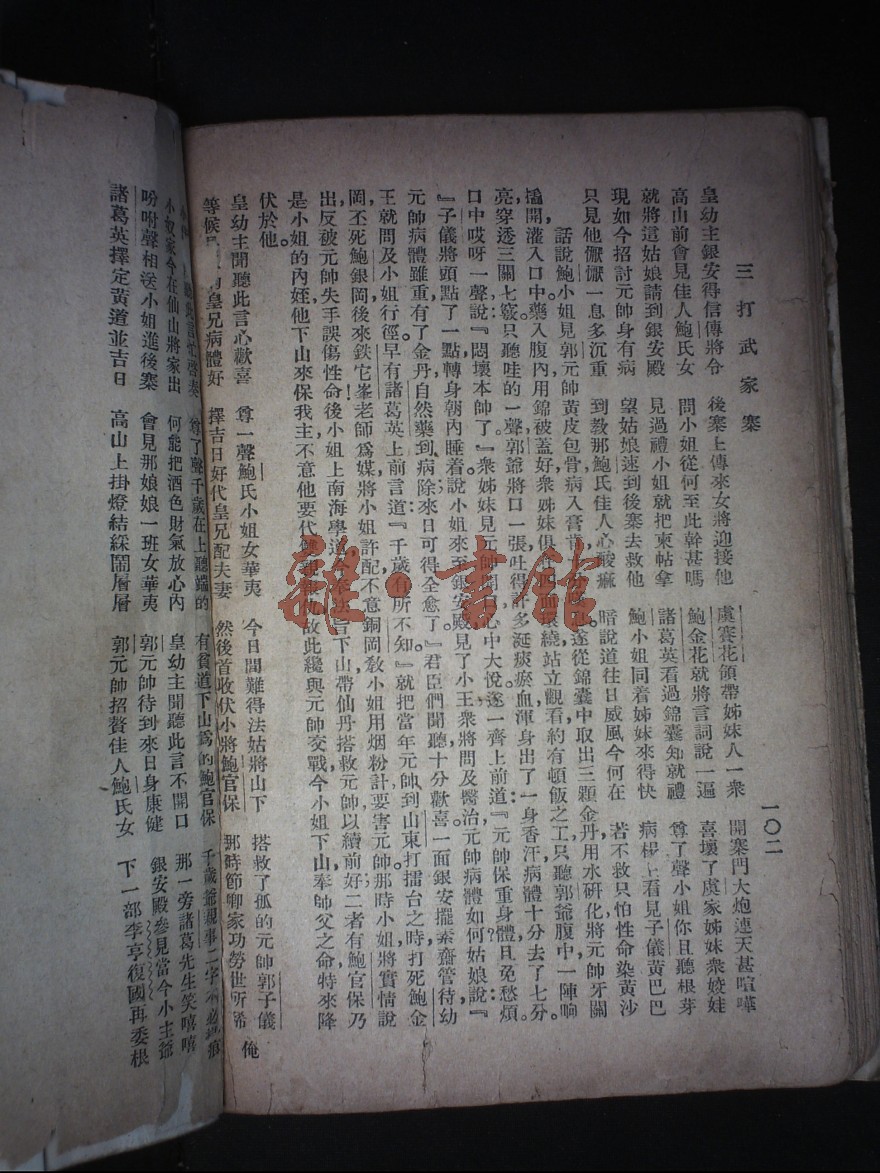 三打武家寨
一〇二
皇幼主銀安得信傳將令 後寨上傳來女將迎接他 虞賽花領帶姊妹人一衆 開寨門大炮連天甚喧嘩
高山前會見佳人鮑氏女 問小姐從何至此幹甚嗎 鮑金花就將言詞說一遍 喜壞了虞家姊妹衆姣娃
就將這姑娘請到銀安殿 見過禮小姐就把柬帖拿 諸葛英看過錦囊知就禮 尊了聲小姐你且聽根芽
現如今招討元帥身有病 望姑娘速到後寨去救他 鮑小姐同着姊妹來得快 病榻上看見子儀黃巴巴
只見他懨懨一息多沉重 到教那鮑氏佳人心酸痲 暗說道往日威風今何在 若不救只怕性命染黃沙
話說鮑小姐見郭元帥黃皮包骨病入膏肓 遂從錦囊中取出三顆金丹用水研化將元帥牙關
撬開灌入口中藥入腹內用錦被蓋好衆姊妹俱在四面環繞站立觀看約有頓飯之工只聽郭爺腹中一陣响
亮穿透三關七竅只聽哇的一聲郭爺將口一張吐得許多涎痰瘀血渾身出了一身香汗病體十分去了七分。
口中哎呀一聲說『悶壞本帥了』衆姊妹見元帥開 心中大悅遂一齊上前道：『元帥保重身體且免愁煩。
』子儀將頭點了一點轉身朝內睡着說小姐來至銀安殿見了小王衆將問及醫治元帥病體如何姑娘說『
元帥病體雖重有了金丹自然藥到病除來日可得全愈了。』君臣們聞聽十分歡喜一面銀安擺素齋管待幼
王就問及小姐行徑早有諸葛英上前言道『千歲有所不知』就把當年元帥到山東打擂台之時打死鮑金
岡丕死鮑銀岡後來鉄它峯老師爲媒將小姐許配不意銅岡敎小姐用烟粉計要害元帥那時小姐將實情說
出反被元帥失手誤傷性命後小姐上南海學道今奉法旨下山帶仙丹搭救元帥以續前好二者有鮑官保乃
是小姐的內姪他下山來保我主不意他要代 故此纔與元帥交戰今小姐下山奉師父之命特來降
伏於他。
皇幼主聞聽此言心歡喜 尊一聲鮑氏小姐女華夷 今日閒難得法姑將山下 搭救了孤的元帥郭子儀 俺
等候 皇兄病體好 擇吉日好代皇兄配夫妻 然後首收伏小將鮑官保 那時節卿家功勞世所稀
啓奏 尊了聲千歲在上聽端的 有貧道下山爲的鮑官保 千歲爺
小奴家今在仙山將家出 何能把酒色財氣放心內 皇幼主聞聽此言不開口 那一旁諸葛先生笑嘻嘻
吩咐聲相送小姐進後寨 會見那娘娘一班女華夷 郭元帥待到來日身康健 銀安殿參見當今小主爺
諸葛英擇定黃道並吉日 高山上掛燈結綵鬧層層 郭元帥招贅佳人鮑氏女 下一部李亨復國再委根
雜·書館